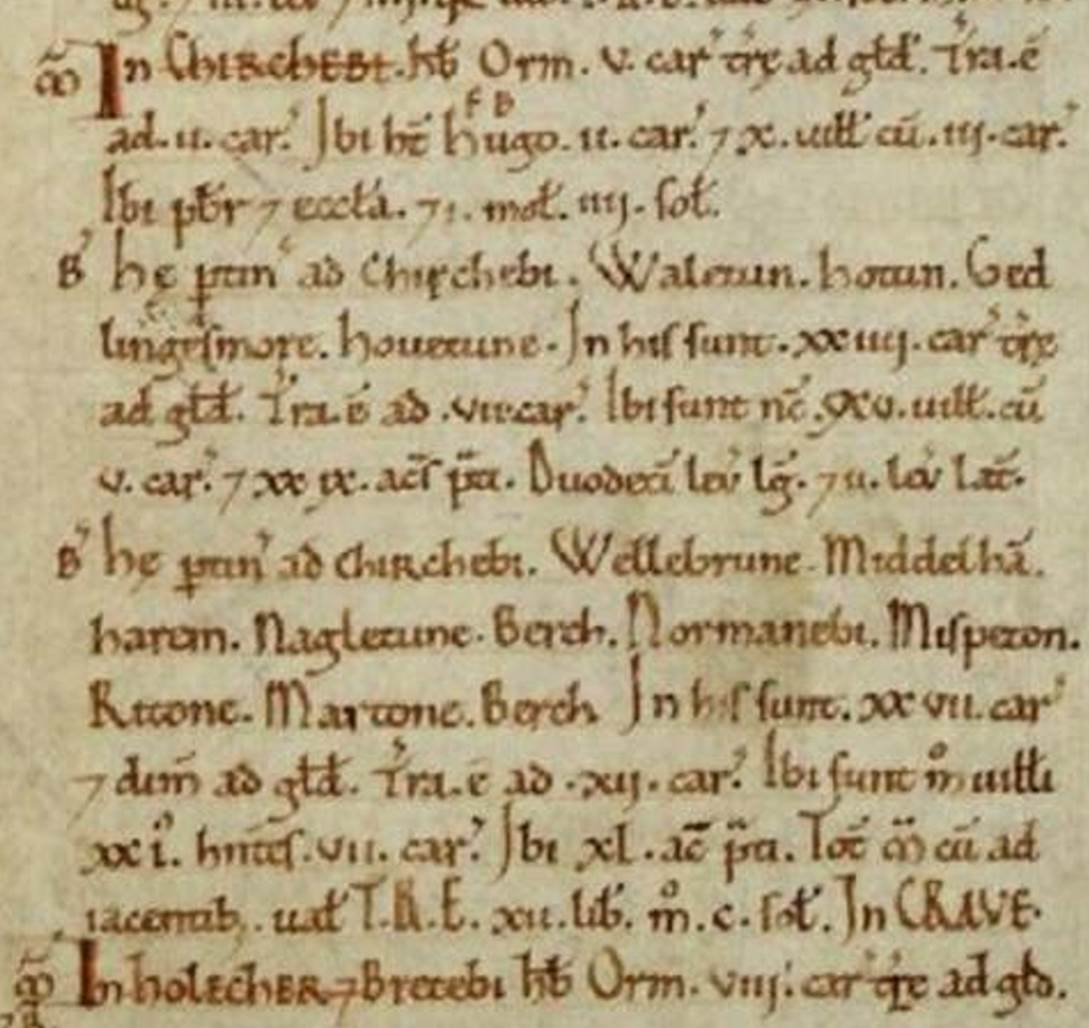 m̃ In Chirchebi. hƀ Orm. v. car᷒ tr̃e ad gld̃. Tr̃a. ẽ
F B
ad. ii. car᷒. Ibi ht̃ hugo. ii. car᷒. ⁊ x. uilł cũ. iii. car᷒.
Ibi pbr̃ ⁊ eccła. ⁊ i. moł. iiii. soł.
B᷒ hę ptiñ ad Chirchebi. Waletun. hotun. Ged
lingesmore. houetune. In his sunt. xxiiii. car᷒ tr̃e
ad gld̃. Tr̃a. ẽ ad. vii. car᷒. Ibi sunt nc̃. xv. uilł. cũ
v. car᷒. ⁊ xxix. ac̃s p̃ti. Duodeci leũ lg̃. ⁊ ii. leũ lat̃.
B᷒ hę ptiñ ad chirchebi. Wellebrune. Middelhã.
harem. Nagletune. Berch. Normanebi. Mispeton.
Ritone. Martone. Berch In his sunt. xxvii. car᷒
⁊ dim̃ ad gld̃. Tr̃a. ẽ ad. xii. car᷒. Ibi sunt m̊ uiłłi
xxi. hñtes. vii. car᷒. Ibi xl. ac̃ p̃ti. Tot̃ m̃ cũ ad
iacentibȝ. uał T.R.E. xii. liƀ. m̊. c. soł. In CRAVE.
m̃ In holecher ⁊ Bretebi hƀ Orm. viii. car᷒ tr̃e ad gld̃.